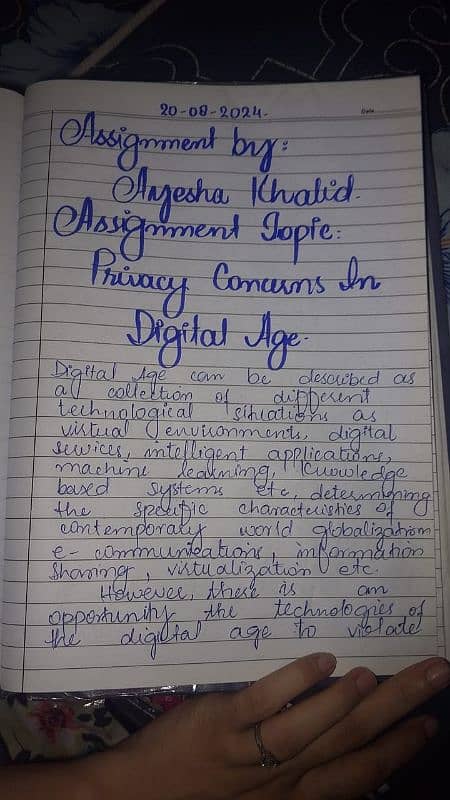 20-08-2024.
Date
Assignment by:
Ayesha Khalid.
Assignment Topic:
Privacy Concerns In
Digital Age.
Digital Age can be described as
a collection of different
technological situations as
virtual environments, digital
services, intelligent applications,
machine learning, Knowledge
based systems etc, determining
the specific characteristics of
contemporary world globalization
e-communications, information
sharing, virtualization etc.
However, there is an
opportunity the technologies of
the digital age to violate